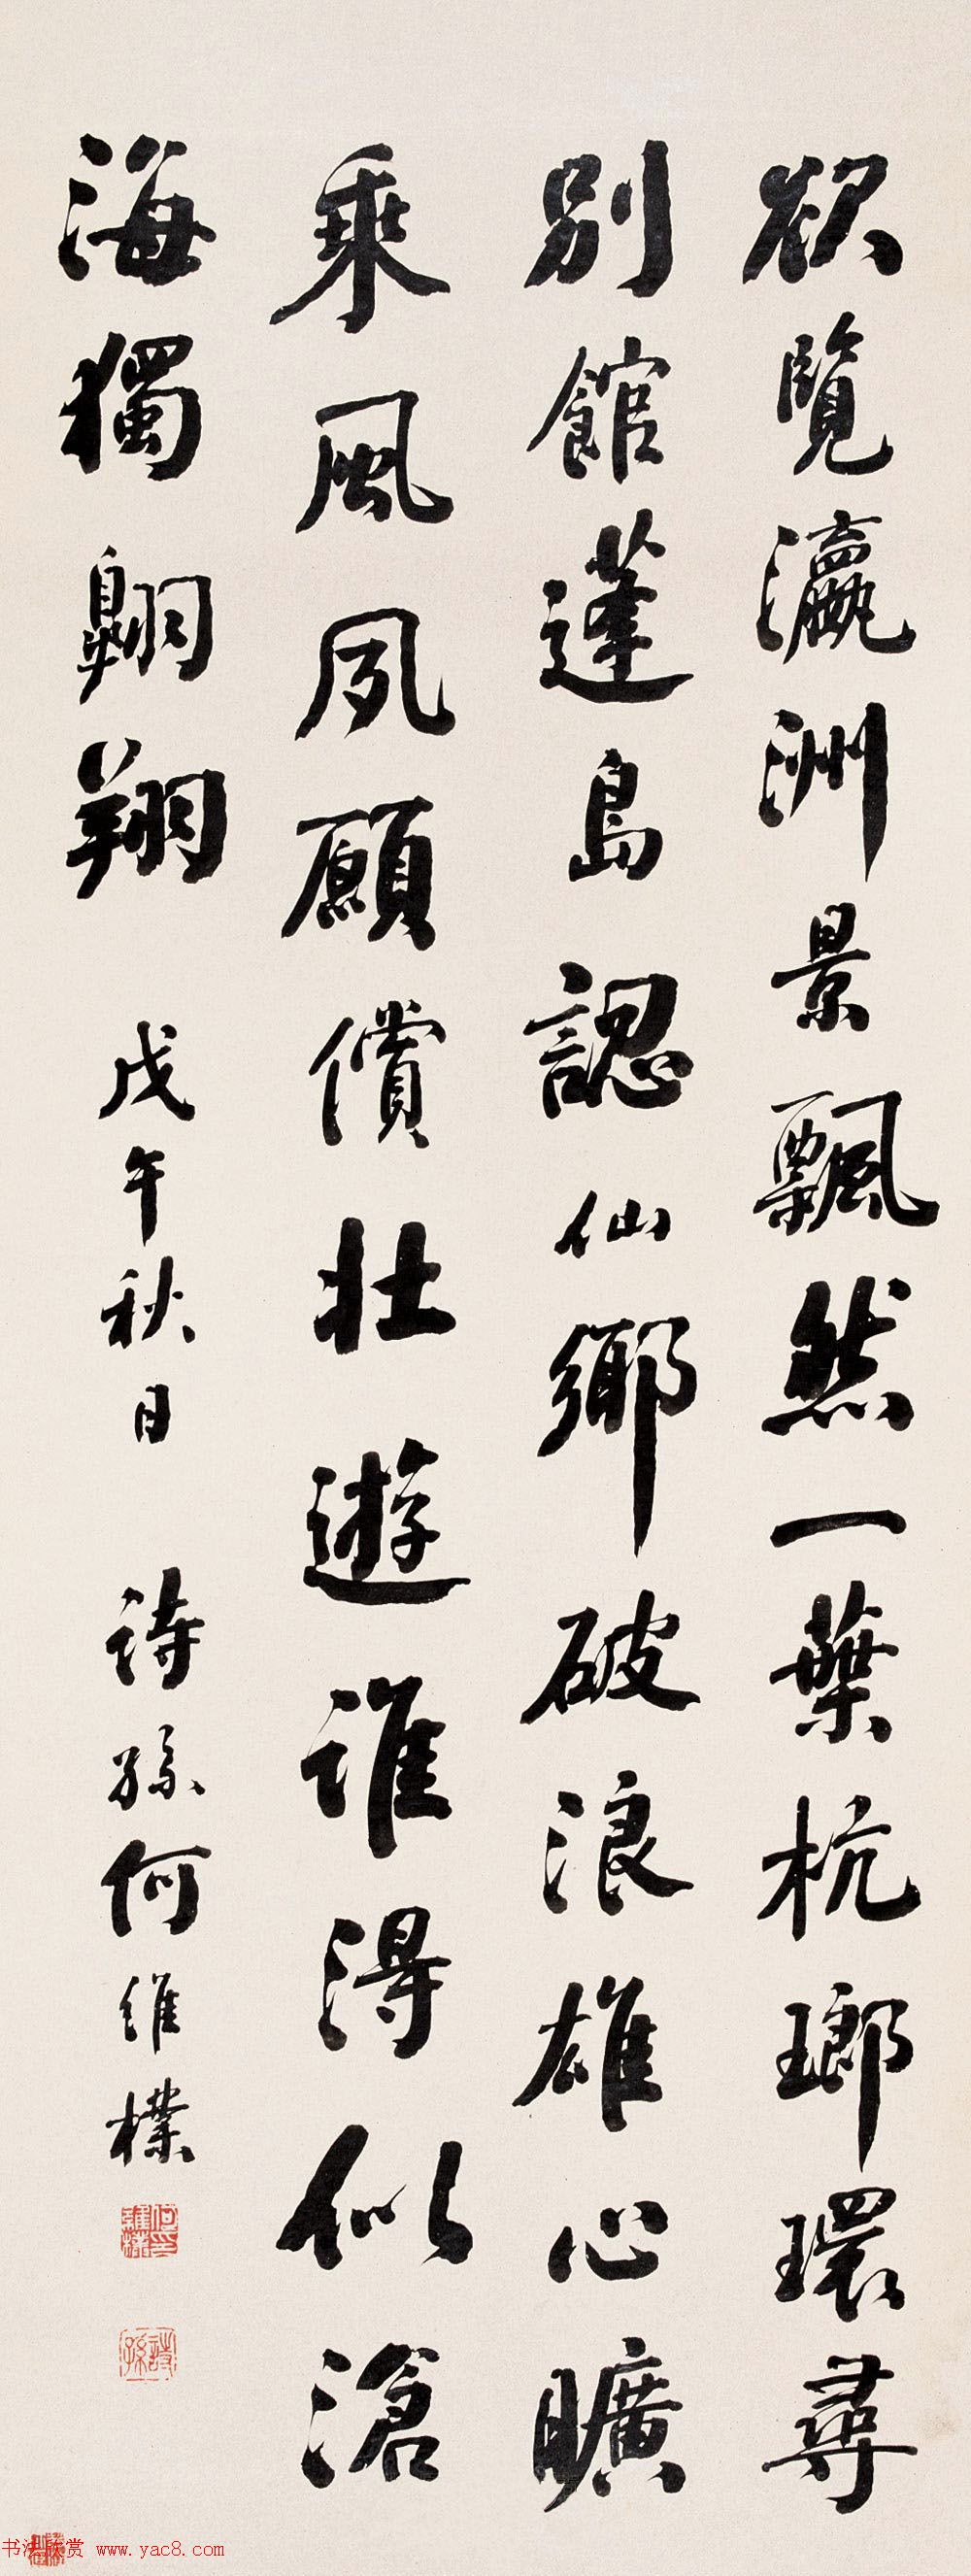 欲覽瀛洲景飄然一葉杭瑯環尋
別館蓬島認仙鄉破浪雄心曠
乘風夙願償壯遊誰得似滄
海獨翺翔
戊午秋日
詩孫何維樸
何維樸印
詩孫
书法欣赏 www.yac8.com